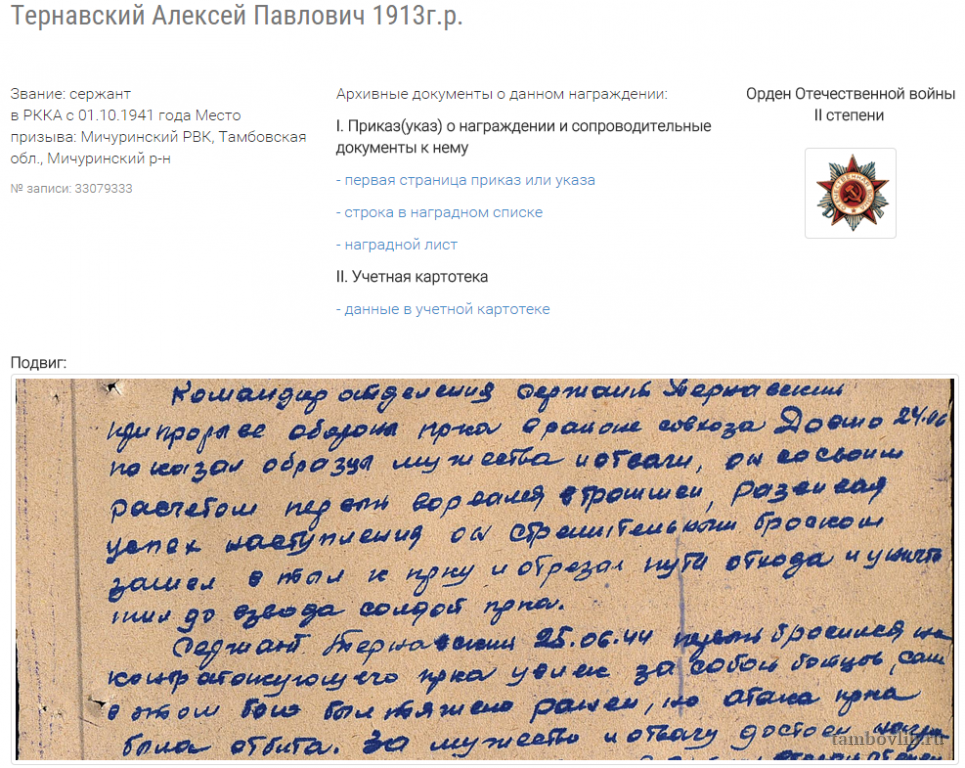 Тернавский Алексей Павлович 1913г.р.
Звание: сержант
в РККА с 01.10.1941 года Место
призыва: Мичуринский РВК, Тамбовская
обл., Мичуринский р-н
№ записи: 33079333
Архивные документы о данном награждении:
I. Приказ(указ) о награждении и сопроводительные
документы к нему
- первая страница приказ или указа
- строка в наградном списке
- наградной лист
II. Учетная картотека
- данные в учетной картотеке
Орден Отечественной войны
II степени
Подвиг:
Командир отделения сержант Тернавский
при прорыве обороны пр-ка в районе совхоза 24.06
показал образцы мужества и отваги, он со своим
расчетом первым ворвался в траншеи, развивая
успех наступления он стремительным броском
зашел в тыл к пр-ку и отрезал пути отхода и уничто
жил до взвода солдат пр-ка.
Сержант Тернавский 25.06.44 бросился на
контратакующего пр-ка увлек за собой бойцов, сам
в этом бою был тяжело ранен, но атака пр-ка
была отбита. За мужество и отвагу достоин
tambovlib.ru